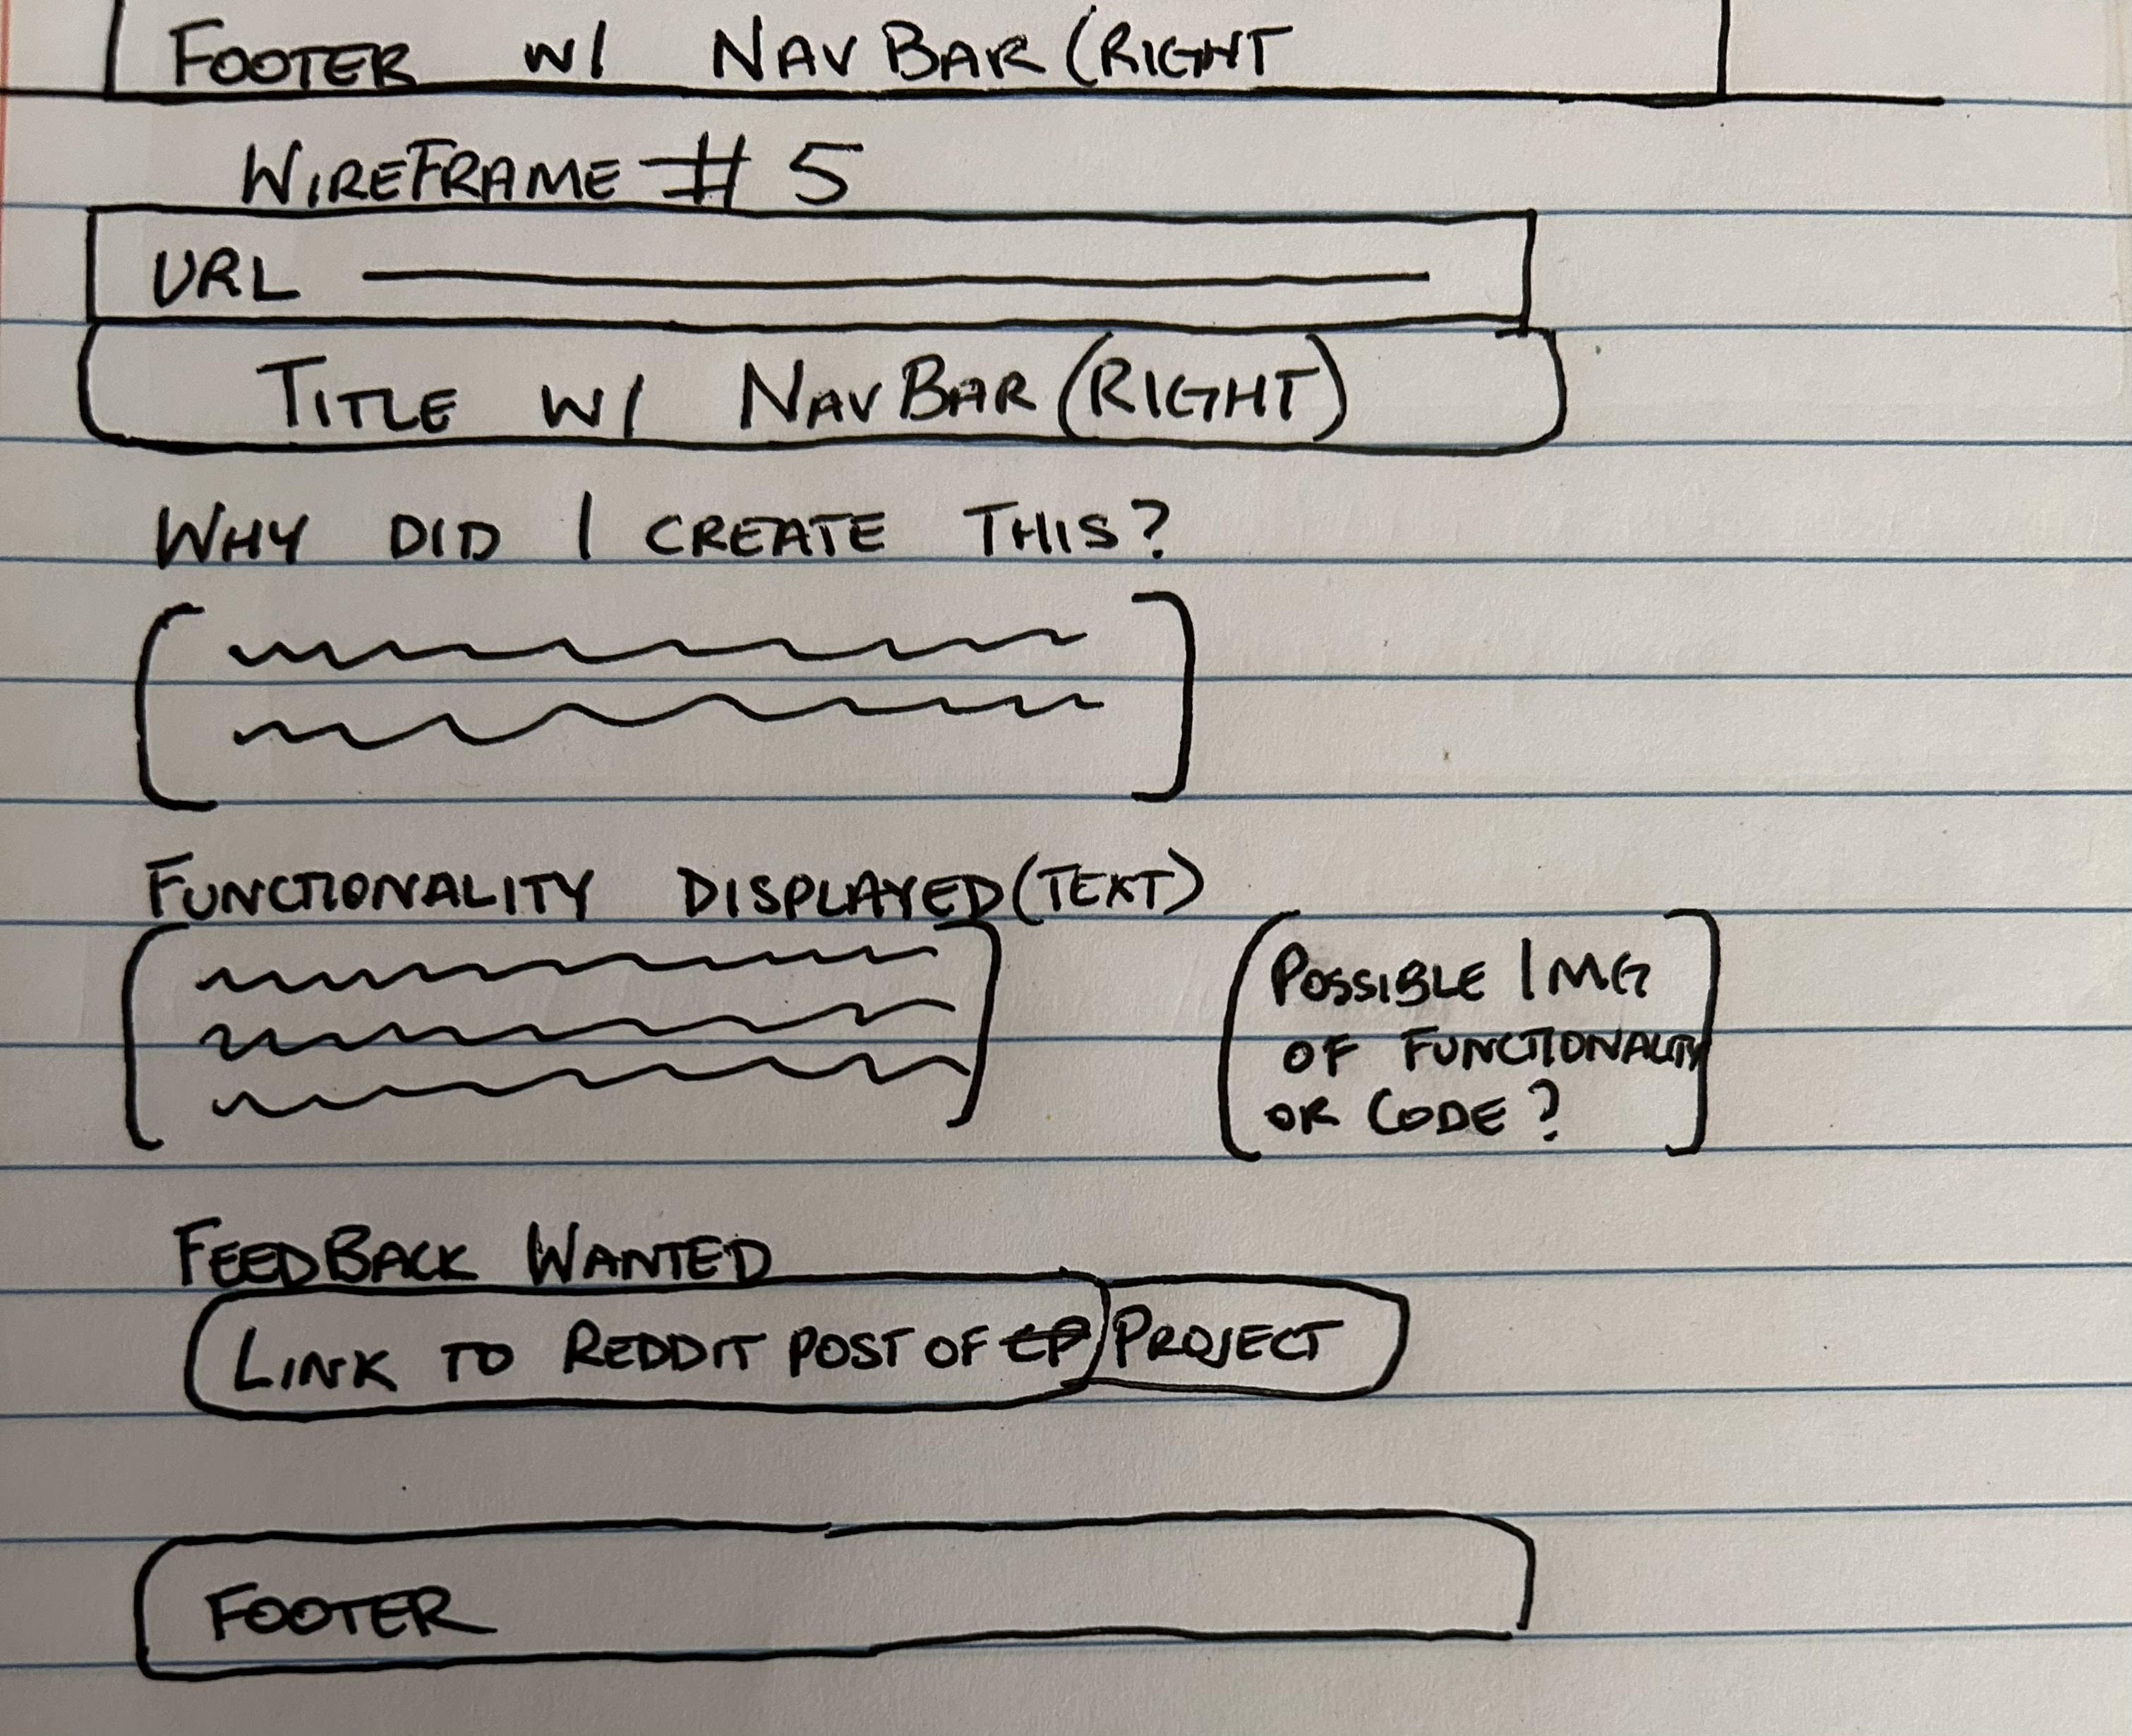 FOOTER W/ NAV BAR (RIGHT
WIREFRAME # 5
URL
TITLE W/ NAV BAR (RIGHT)
WHY DID I CREATE THIS?
FUNCTIONALITY DISPLAYED (TEXT)
POSSIBLE IMG
OF FUNCTIONALITY
OR CODE?
FEEDBACK WANTED
LINK TO REDDIT POST OF PROJECT
FOOTER